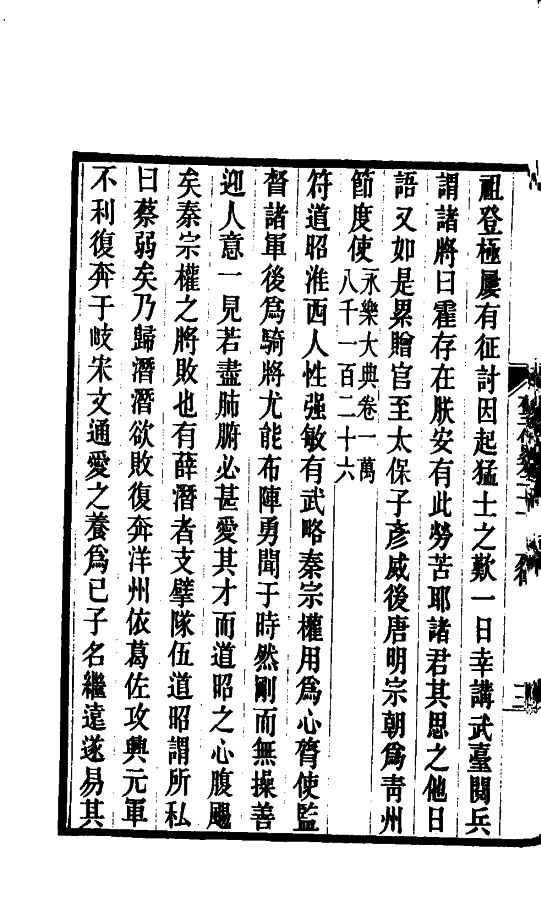 祖登極屢有征討因起猛士之歎一日幸講武臺閱兵
謂諸將曰霍存在朕安有此勞苦耶諸君其思之他日
語又如是累贈官至太保子彥威後唐明宗朝爲靑州
節度使永樂大典卷一萬
八千一百二十六
符道昭淮西人性强敏有武略秦宗權用爲心膂使監
督諸軍後爲騎將尤能布陣勇聞于時然剛而無操善
迎人意一見若盡肺腑必甚愛其才而道昭之心腹颺
矣秦宗權之將敗也有薛潛者支擘隊伍道昭謂所私
曰蔡弱矣乃歸潛潛欲敗復奔洋州依葛佐攻興元軍
不利復奔于岐宋文通愛之養爲己子名繼遠遂易其